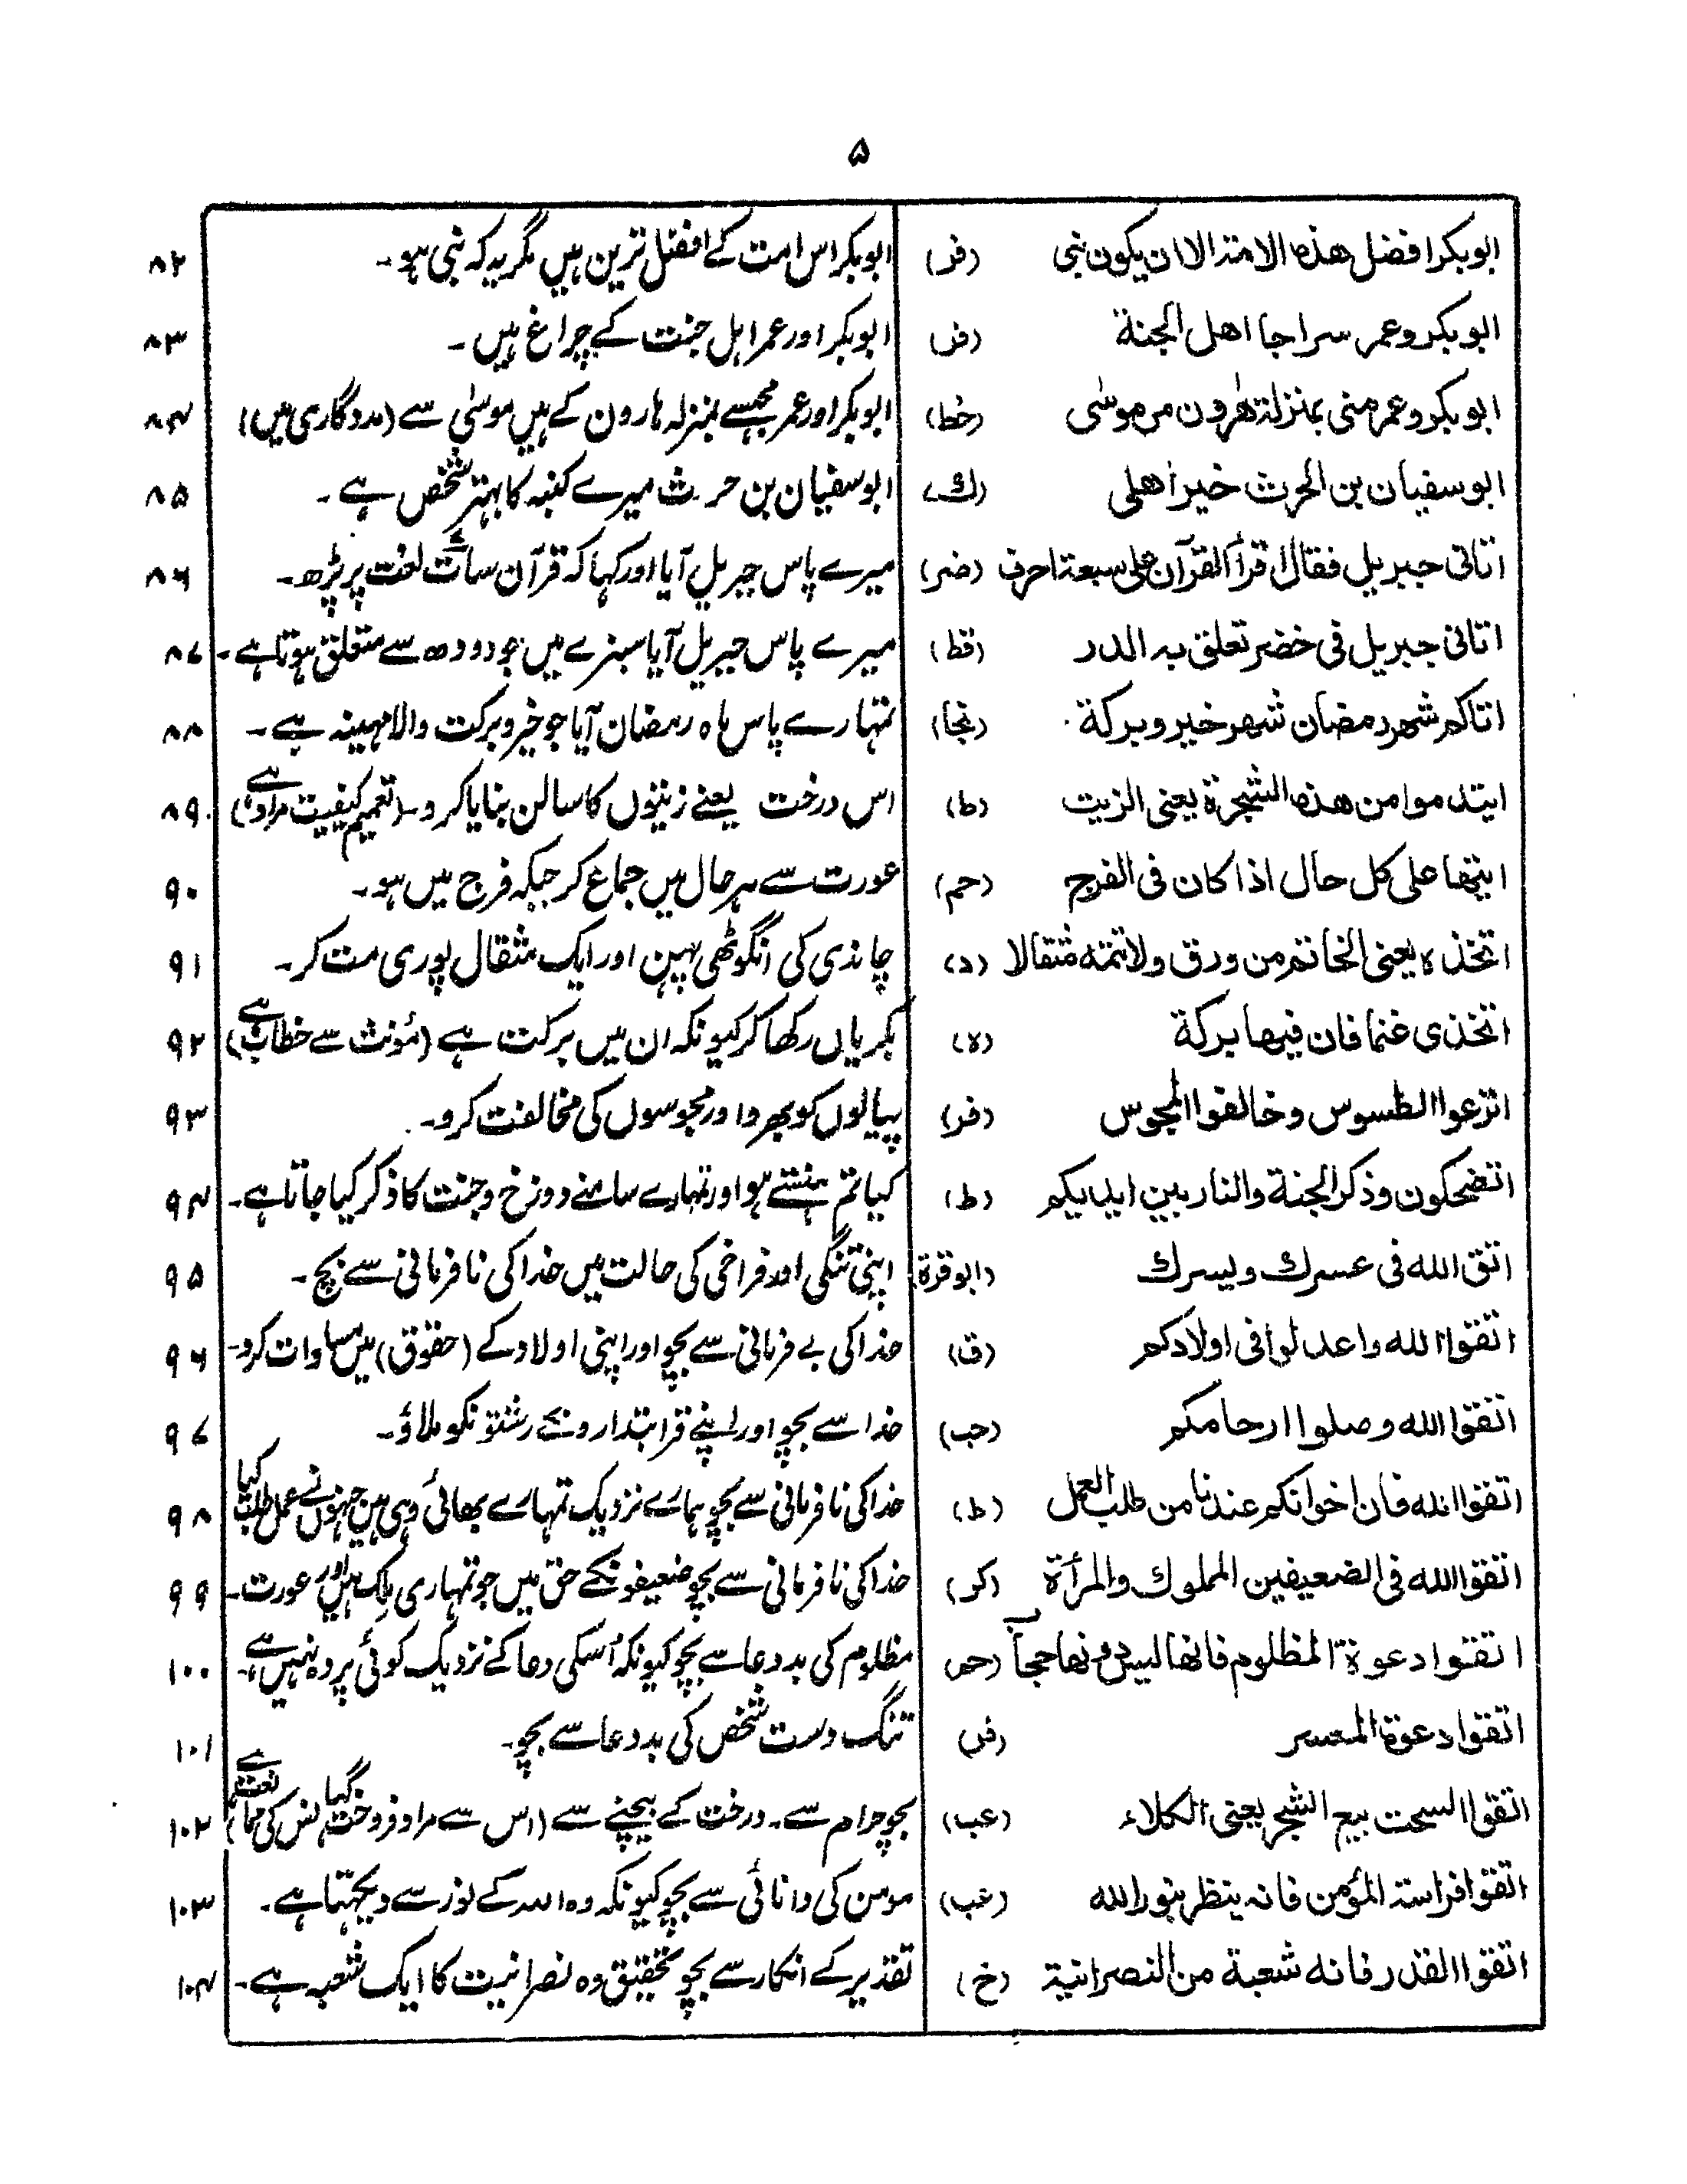 ۵
ابوبکر افضل هذه الامة الا ان یکون نبی (فر) ابوبکر اس امت کے افضل ترین ہیں مگر یہ کہ نبی ہو۔ ۸۲
ابوبکر وعمر سراجا اهل الجنة (فر) ابوبکر اور عمر اہل جنت کے چراغ ہیں۔ ۸۳
ابوبکر وعمر منی بمنزلة هٰرون من موسٰی (خط) ابوبکر اور عمر مجھسے بمنزلہ ہارون کے ہیں موسٰی سے (مددگاری میں) ۸۴
ابوسفیان بن الحرث خیر اهلی (ك) ابوسفیان بن حرث میرے کنبہ کا بہتر شخص ہے۔ ۸۵
اتانی جبریل فقال اقرأ القرآن علی سبعة احرف (ضر) میرے پاس جبریل آیا اور کہا کہ قرآن سات لغت پر پڑھ۔ ۸۶
اتانی جبریل فی خضر تعلق به الدر (قط) میرے پاس جبریل آیا سبزے میں جو دودھ سے متعلق ہوتا ہے۔ ۸۷
اتاکم شهر رمضان شهر خیر وبرکة (نجا) تمہارے پاس ماہ رمضان آیا جو خیر و برکت والا مہینہ ہے۔ ۸۸
ایتدموا من هذه الشجرة یعنی الزیت (ط) اس درخت یعنے زیتوں کا سالن بنایا کرو۔ (تعمیم کیفیت مراد ہے) ۸۹
ایتها علی کل حال اذا کان فی الفرج (حم) عورت سے ہر حال میں جماع کر جبکہ فرج میں ہو۔ ۹۰
اتخذه یعنی الخاتم من ورق ولا تتمه مثقالا (د) چاندی کی انگوٹھی پہن اور ایک مثقال پوری مت کر۔ ۹۱
اتخذی غنما فان فیها برکة (ه) بکریاں رکھا کر کیونکہ ان میں برکت ہے (مؤنث سے خطاب ہے) ۹۲
اترعوا الطسوس وخالفوا المجوس (فر) پیالوں کو بھرو اور مجوسوں کی مخالفت کرو۔ ۹۳
اتضحکون وذکر الجنة والنار بین ایدیکم (ط) کیا تم ہنستے ہو اور تمہارے سامنے دوزخ و جنت کا ذکر کیا جاتا ہے۔ ۹۴
اتق الله فی عسرك ویسرك (ابوقرة) اپنی تنگی اور فراخی کی حالت میں خدا کی نافرمانی سے بچ۔ ۹۵
اتقوا الله واعدلوا فی اولادکم (ق) خدا کی بے فرمانی سے بچو اور اپنی اولاد کے (حقوق) میں مساوات کرو۔ ۹۶
اتقوا الله وصلوا ارحامکم (حب) خدا سے بچو اور اپنے قرابتدارونکے رشتونکو ملاؤ۔ ۹۷
اتقوا الله فان اخوانکم عندنا من طلب العمل (ط) خدا کی نافرمانی سے بچو ہمارے نزدیک تمہارے بھائی وہی ہیں جنہوں نے عمل طلب کیا ۹۸
اتقوا الله فی الضعیفین المملوك والمرأة (کر) خدا کی نافرمانی سے بچو ضعیفونکے حق میں جو تمہاری ملک ہیں اور عورت۔ ۹۹
اتقوا دعوة المظلوم فانها لیس دونها حجاب (حم) مظلوم کی بددعا سے بچو کیونکہ اُسکی دعا کے نزدیک کوئی پردہ نہیں ہے۔ ۱۰۰
اتقوا دعوة المعسر (فر) تنگ دست شخص کی بددعا سے بچو۔ ۱۰۱
اتقوا السحت بیع الشجر یعنی الکلاء (عب) بچو حرام سے۔ درخت کے بیچنے سے (اس سے مراد فروخت گیاہ اس کی ممانعت ہے) ۱۰۲
اتقوا فراسة المؤمن فانه ینظر بنور الله (عب) مومن کی دانائی سے بچو کیونکہ وہ اللہ کے نور سے دیکھتا ہے۔ ۱۰۳
اتقوا القدر فانه شعبة من النصرانیة (خ) تقدیر کے انکار سے بچو تحقیق وہ نصرانیت کا ایک شعبہ ہے۔ ۱۰۴